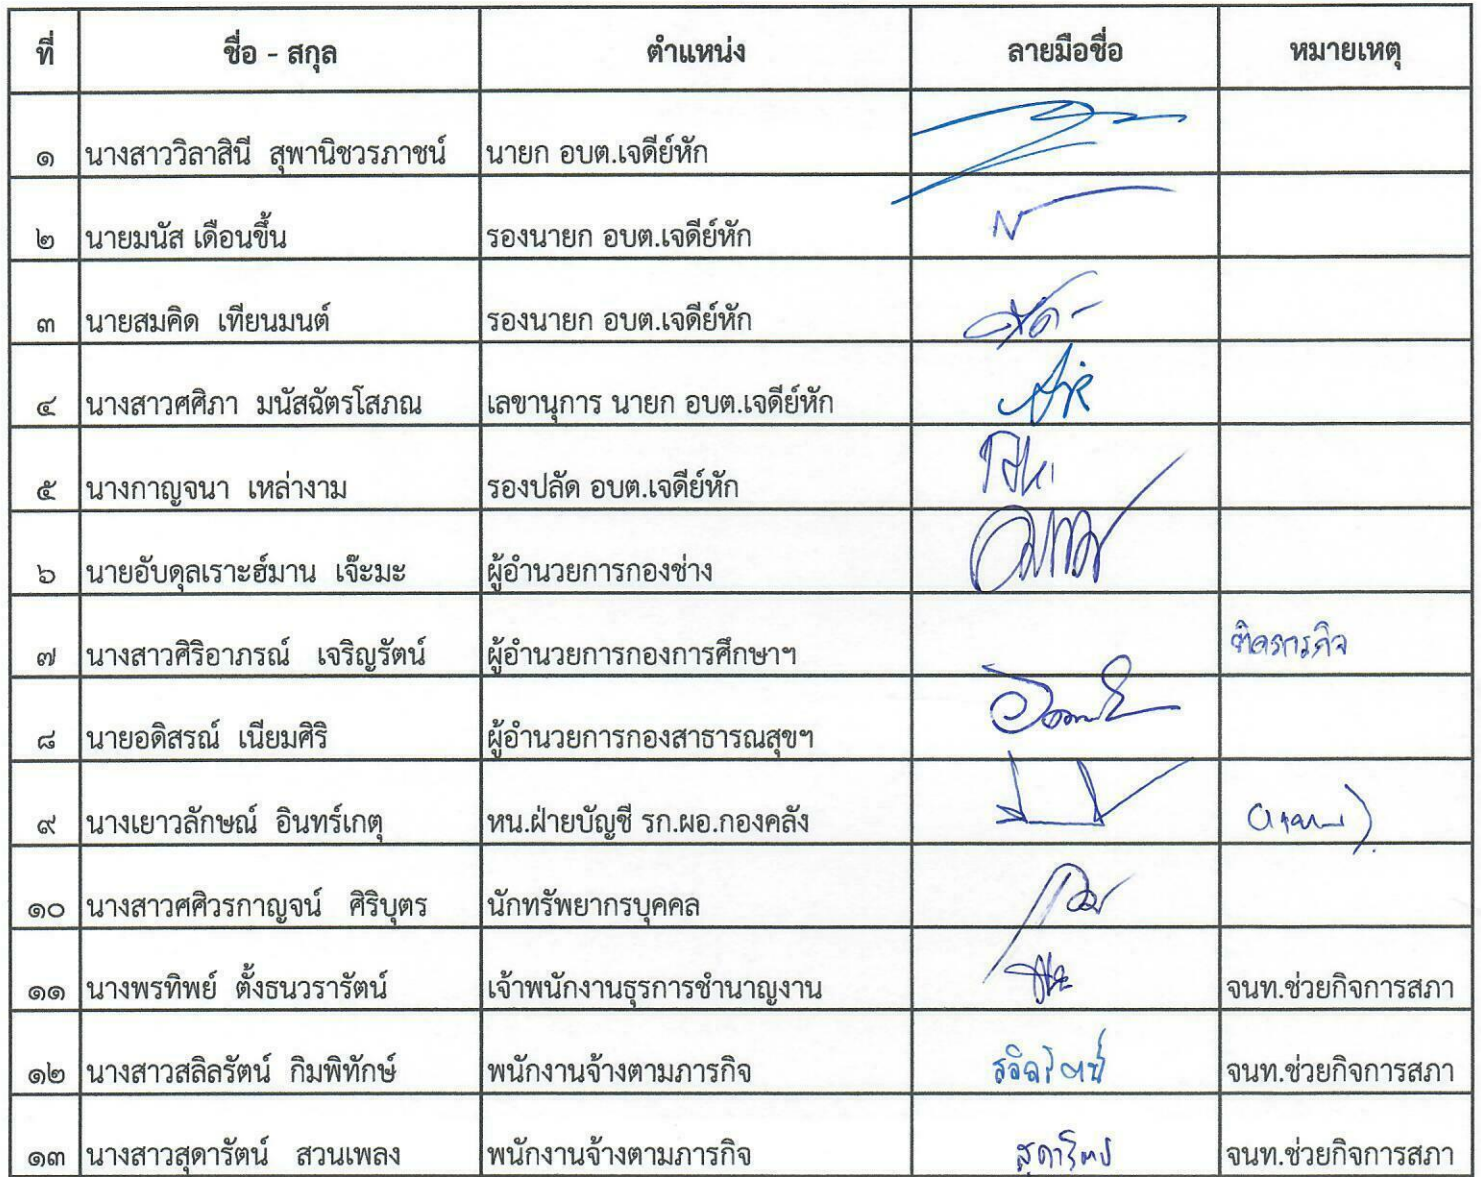 ที่ ชื่อ - สกุล ตำแหน่ง ลายมือชื่อ หมายเหตุ
๑ นางสาววิลาสินี สุพานิชวรภาชน์ นายก อบต.เจดีย์หัก
๒ นายมนัส เดือนขึ้น รองนายก อบต.เจดีย์หัก
๓ นายสมคิด เทียนมนต์ รองนายก อบต.เจดีย์หัก
๔ นางสาวศศิภา มนัสฉัตรโสภณ เลขานุการ นายก อบต.เจดีย์หัก
๕ นางกาญจนา เหล่างาม รองปลัด อบต.เจดีย์หัก
๖ นายอับดุลเราะฮ์มาน เจ๊ะมะ ผู้อำนวยการกองช่าง
๗ นางสาวศิริอาภรณ์ เจริญรัตน์ ผู้อำนวยการกองการศึกษาฯ ติดภารกิจ
๘ นายอดิสรณ์ เนียมศิริ ผู้อำนวยการกองสาธารณสุขฯ
๙ นางเยาวลักษณ์ อินทร์เกตุ หน.ฝ่ายบัญชี รก.ผอ.กองคลัง
๑๐ นางสาวศศิวรกาญจน์ ศิริบุตร นักทรัพยากรบุคคล
๑๑ นางพรทิพย์ ตั้งธนวรารัตน์ เจ้าพนักงานธุรการชำนาญงาน จนท.ช่วยกิจการสภา
๑๒ นางสาวสลิลรัตน์ กิมพิทักษ์ พนักงานจ้างตามภารกิจ สลิลรัตน์ จนท.ช่วยกิจการสภา
๑๓ นางสาวสุดารัตน์ สวนเพลง พนักงานจ้างตามภารกิจ สุดารัตน์ จนท.ช่วยกิจการสภา